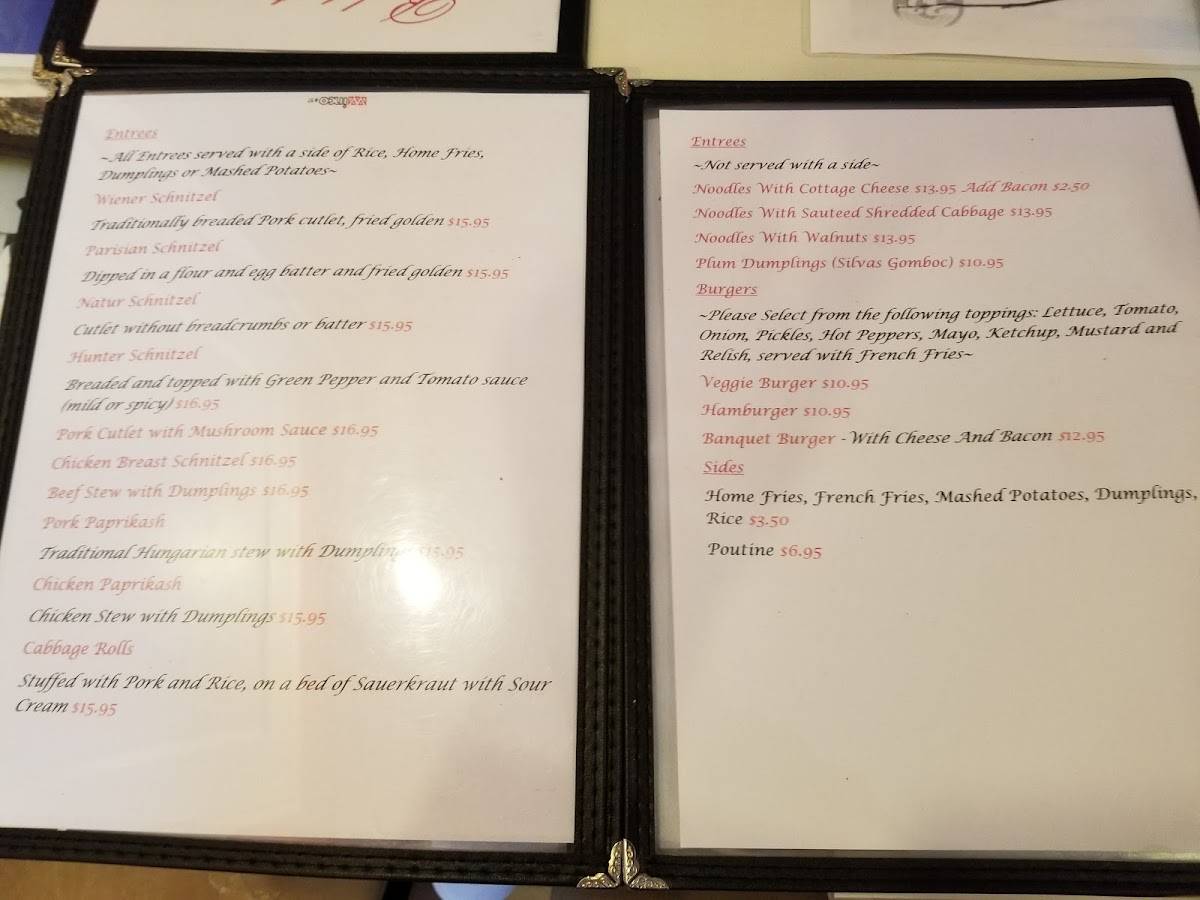 Entrees
~All Entrees served with a side of Rice, Home Fries,
Dumplings or Mashed Potatoes~
Wiener Schnitzel
Traditionally breaded Pork cutlet, fried golden $15.95
Parisian Schnitzel
Dipped in a flour and egg batter and fried golden $15.95
Natur Schnitzel
Cutlet without breadcrumbs or batter $15.95
Hunter Schnitzel
Breaded and topped with Green Pepper and Tomato sauce
(mild or spicy) $16.95
Pork Cutlet with Mushroom Sauce $16.95
Chicken Breast Schnitzel $16.95
Beef Stew with Dumplings $16.95
Pork Paprikash
Traditional Hungarian stew with Dumplings $15.95
Chicken Paprikash
Chicken Stew with Dumplings $15.95
Cabbage Rolls
Stuffed with Pork and Rice, on a bed of Sauerkraut with Sour
Cream $15.95
Entrees
~Not served with a side~
Noodles With Cottage Cheese $13.95 Add Bacon $2.50
Noodles With Sauteed Shredded Cabbage $13.95
Noodles With Walnuts $13.95
Plum Dumplings (Silvas Gomboc) $10.95
Burgers
~Please Select from the following toppings: Lettuce, Tomato,
Onion, Pickles, Hot Peppers, Mayo, Ketchup, Mustard and
Relish, served with French Fries~
Veggie Burger $10.95
Hamburger $10.95
Banquet Burger - With Cheese And Bacon $12.95
Sides
Home Fries, French Fries, Mashed Potatoes, Dumplings,
Rice $3.50
Poutine $6.95